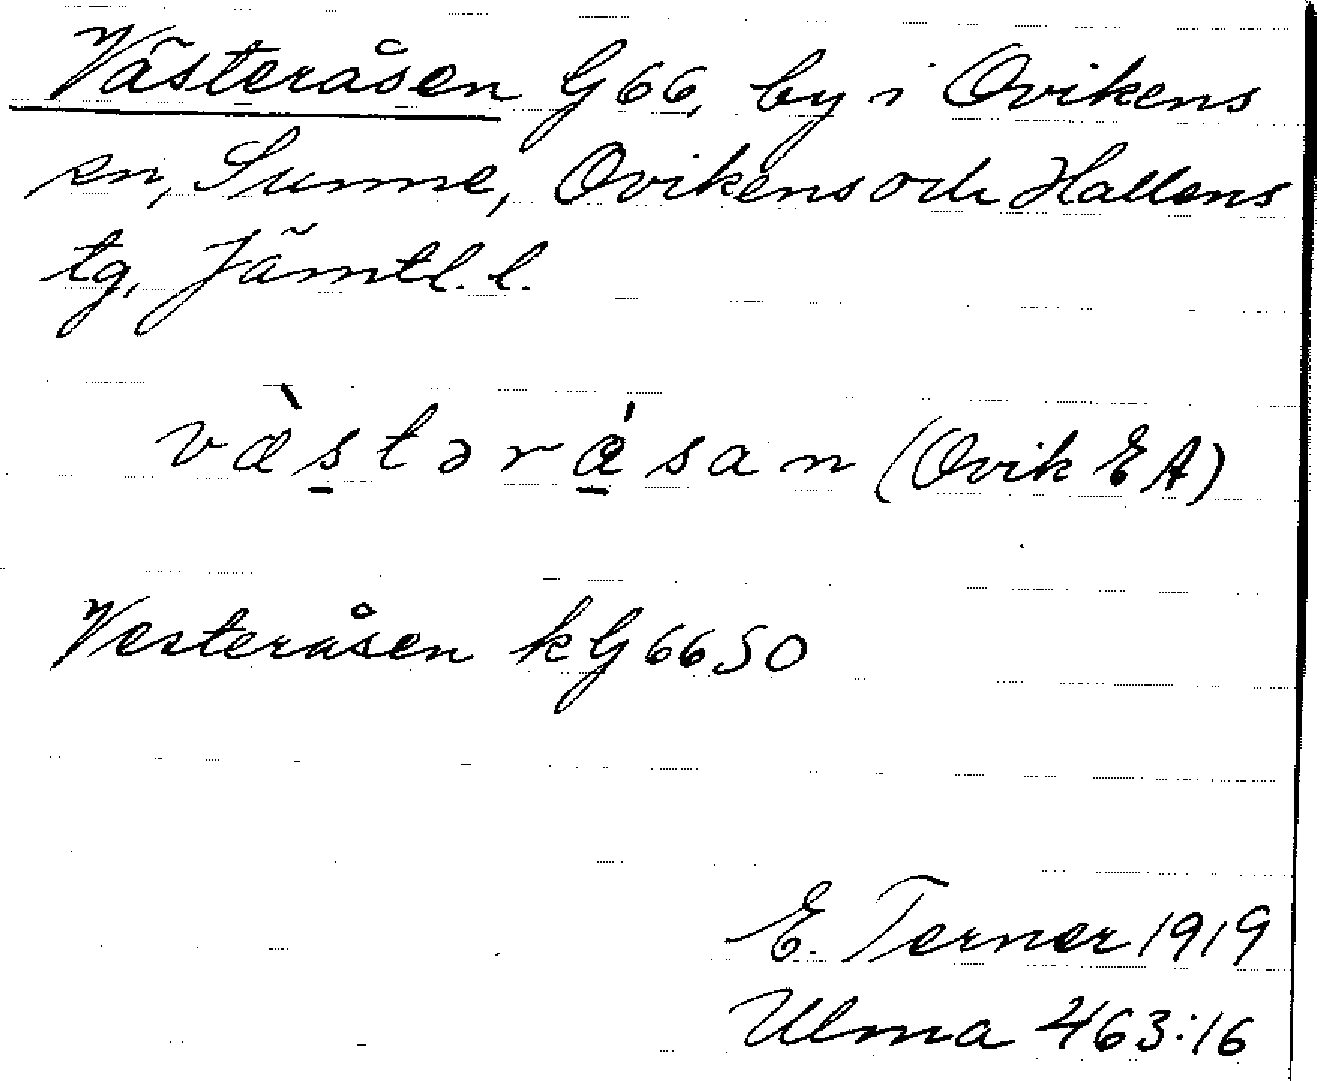 Västeråsen G66, by i Ovikens
sn, Sunne, Ovikens och Hallens
tg, Jämtl. l.
væ̀stərǻsan (Ovik EA)
Vesteråsen kG66SO
E. Terner 1919
Ulma 463:16